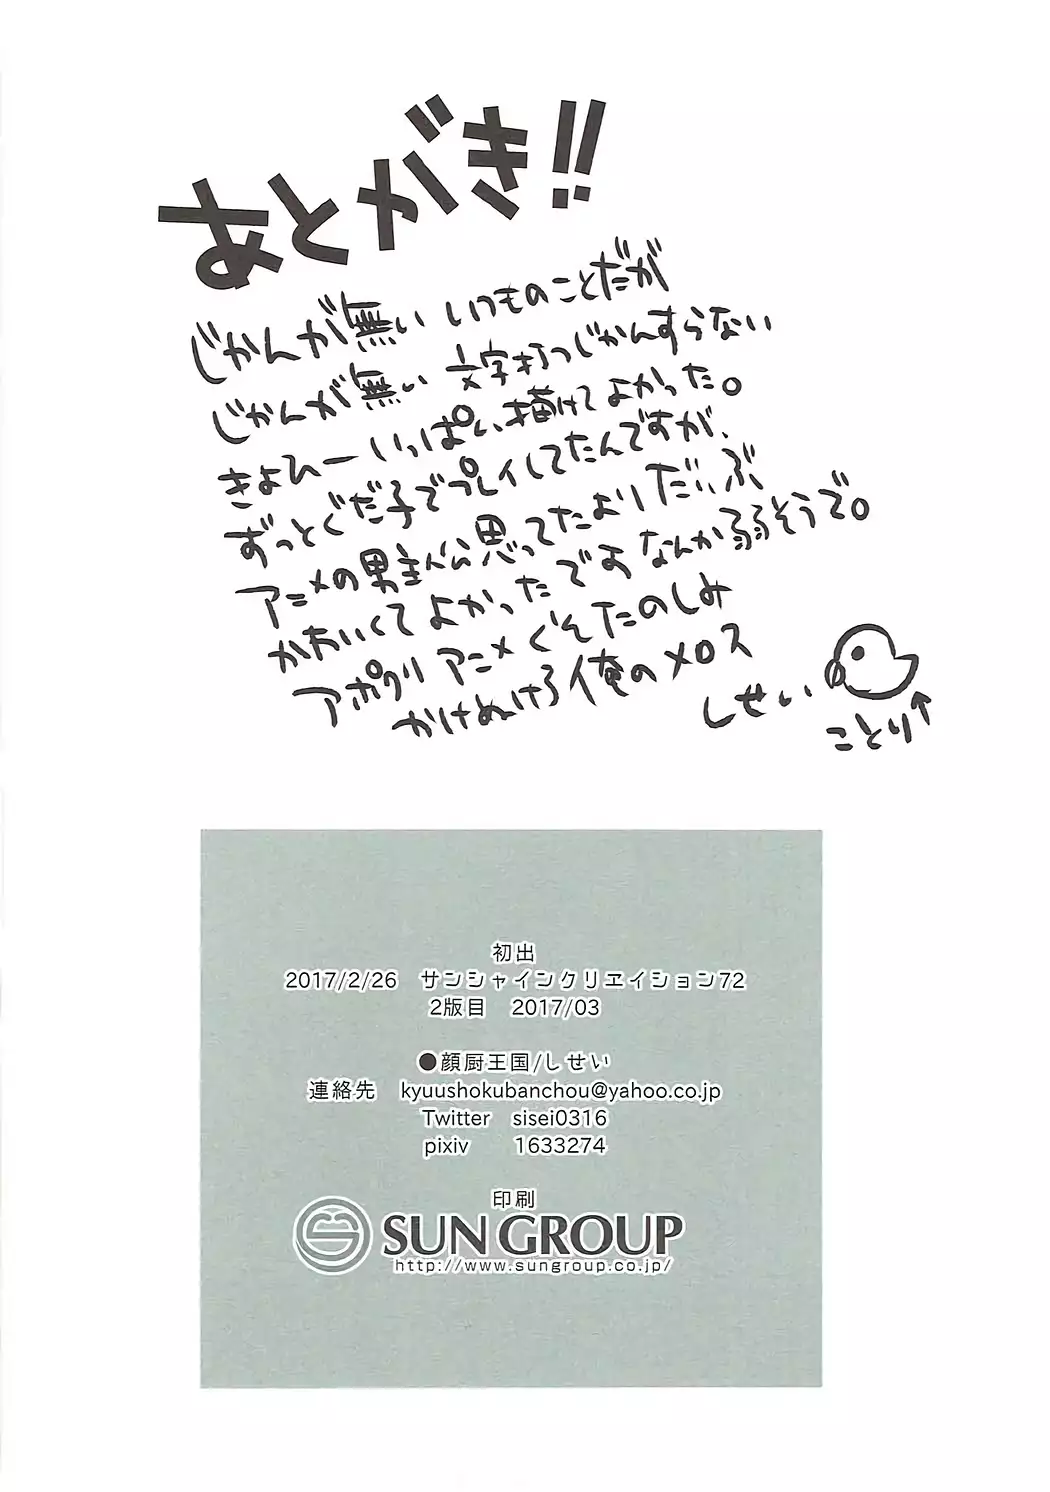 あとがき!!
じかんが無い いつものことだが
じかんが無い 文字打つじかんすらない
きよひーいっぱい描けてよかった。
ずっとぐだ子でプレイしてたんですが、
アニメの男主人公思ってたよりだいぶ
かわいくてよかったです なんか弱そうで。
アポクリアニメくそたのしみ
かけぬけろ俺のメロス
しせい
ことり↑
初出
2017/2/26 サンシャインクリエイション72
2版目 2017/03
●顔厨王国/しせい
連絡先 kyuushokubanchou@yahoo.co.jp
Twitter sisei0316
pixiv 1633274
印刷
SUN GROUP
http://www.sungroup.co.jp/